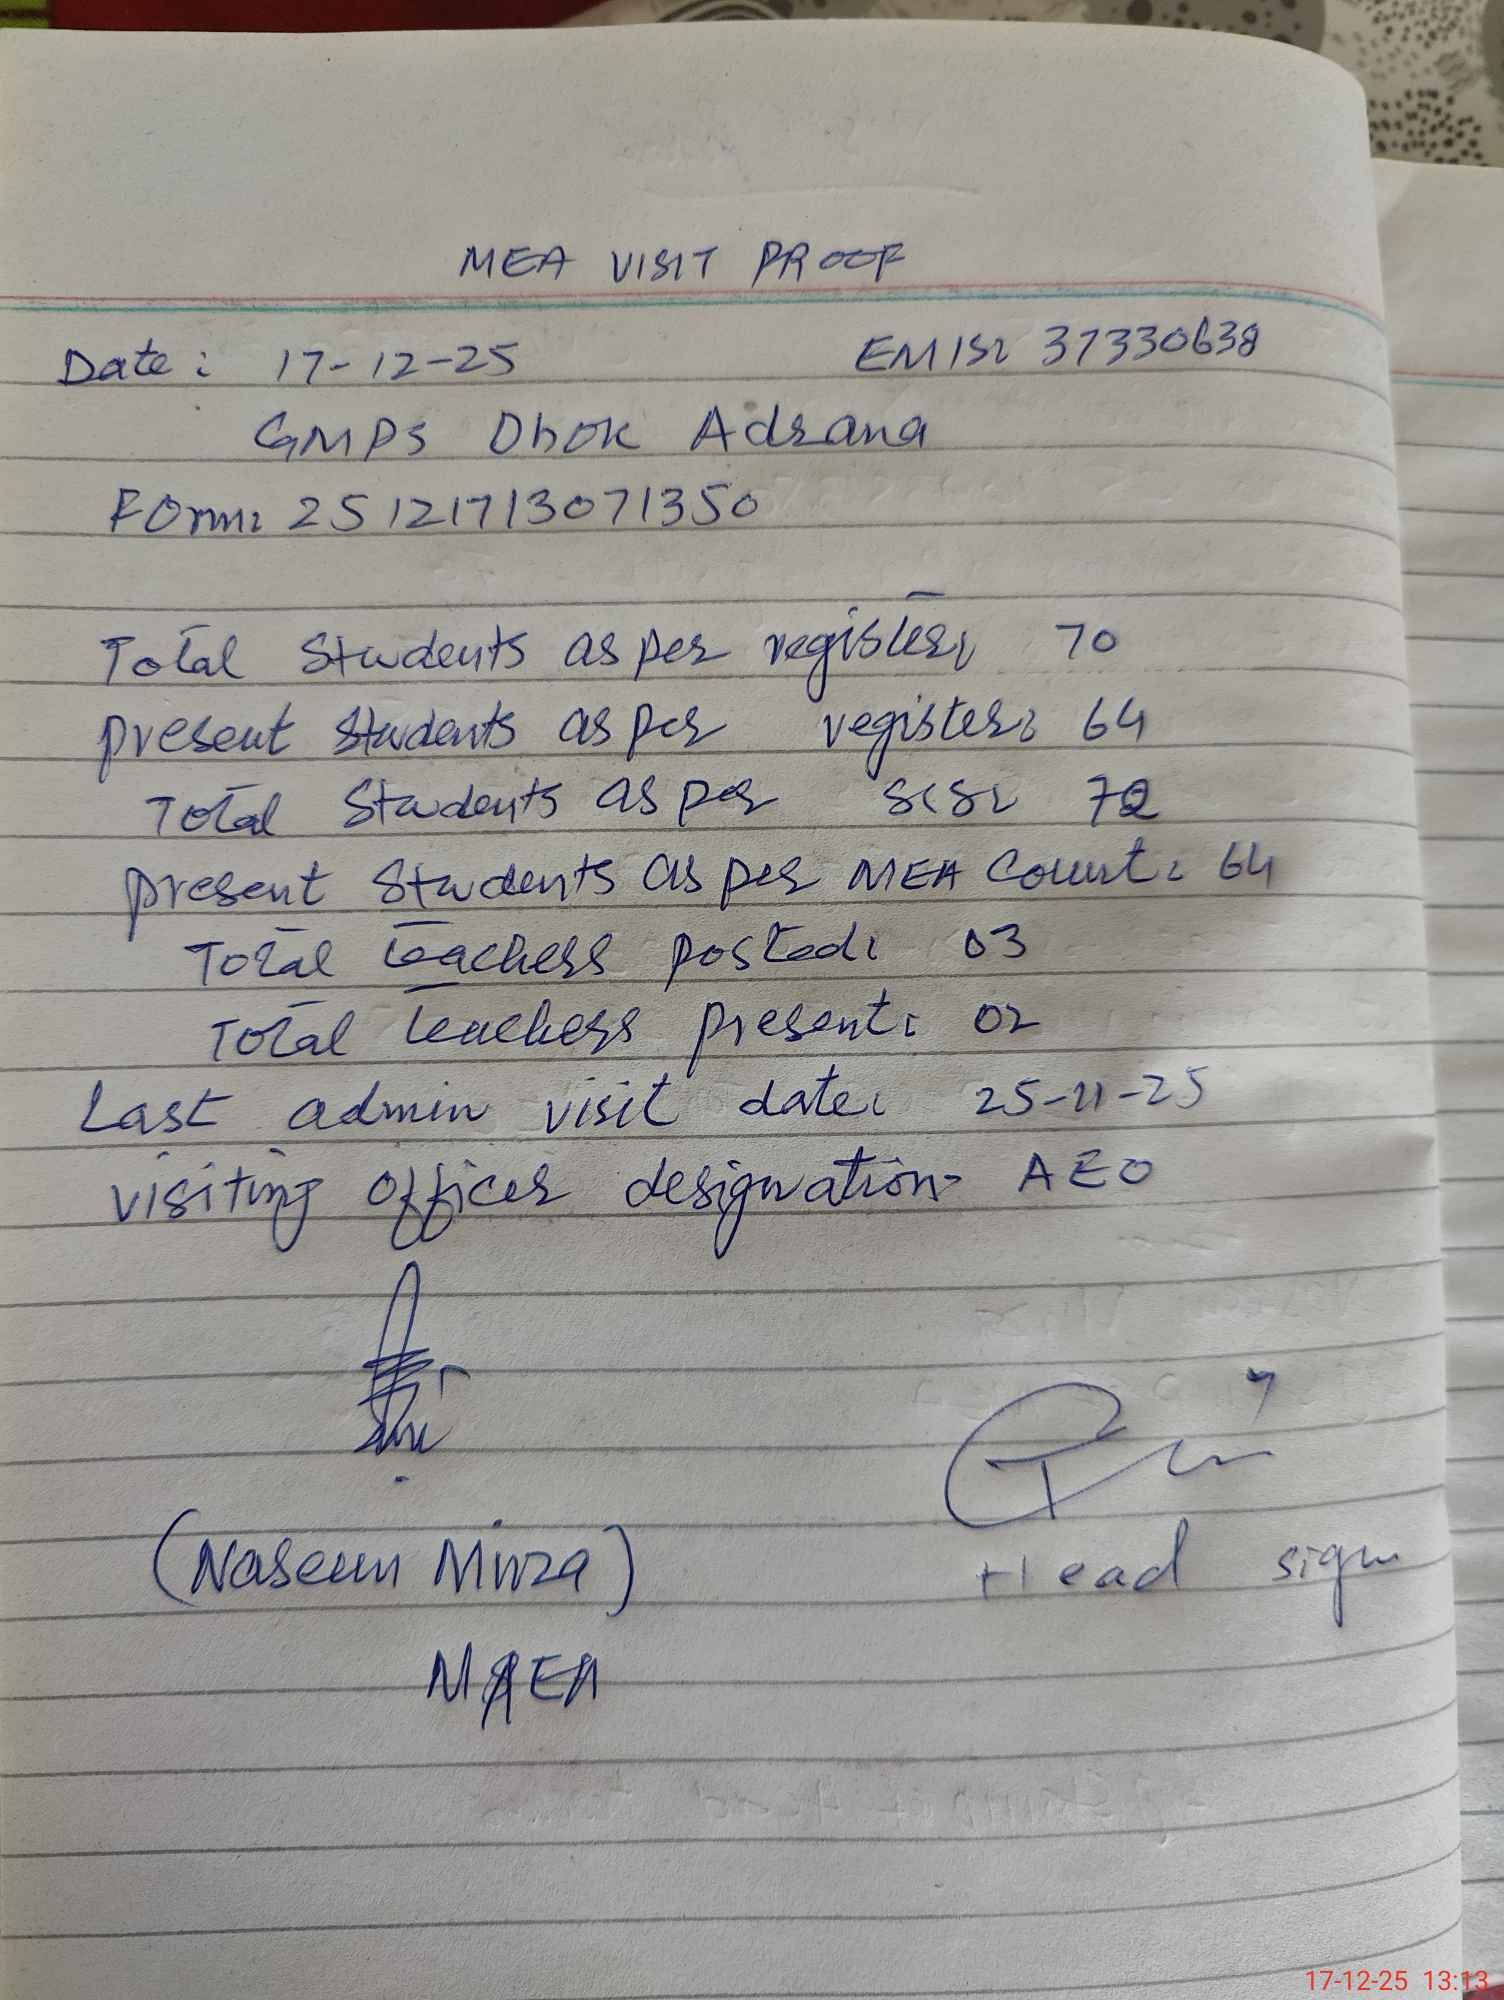 MEA VISIT PROOF
Date: 17-12-25 EMIS: 37330638
GMPS Dhok Adrana
Form: 25121713071350
Total Students as per register: 70
present students as per register: 64
Total Students as per SIS: 72
present Students as per MEA Count: 64
Total teachers posted: 03
Total teachers present: 02
Last admin visit date: 25-11-25
visiting officer designation- AEO
(Naseem Mirza)
Head sign
MEA
17-12-25 13:13